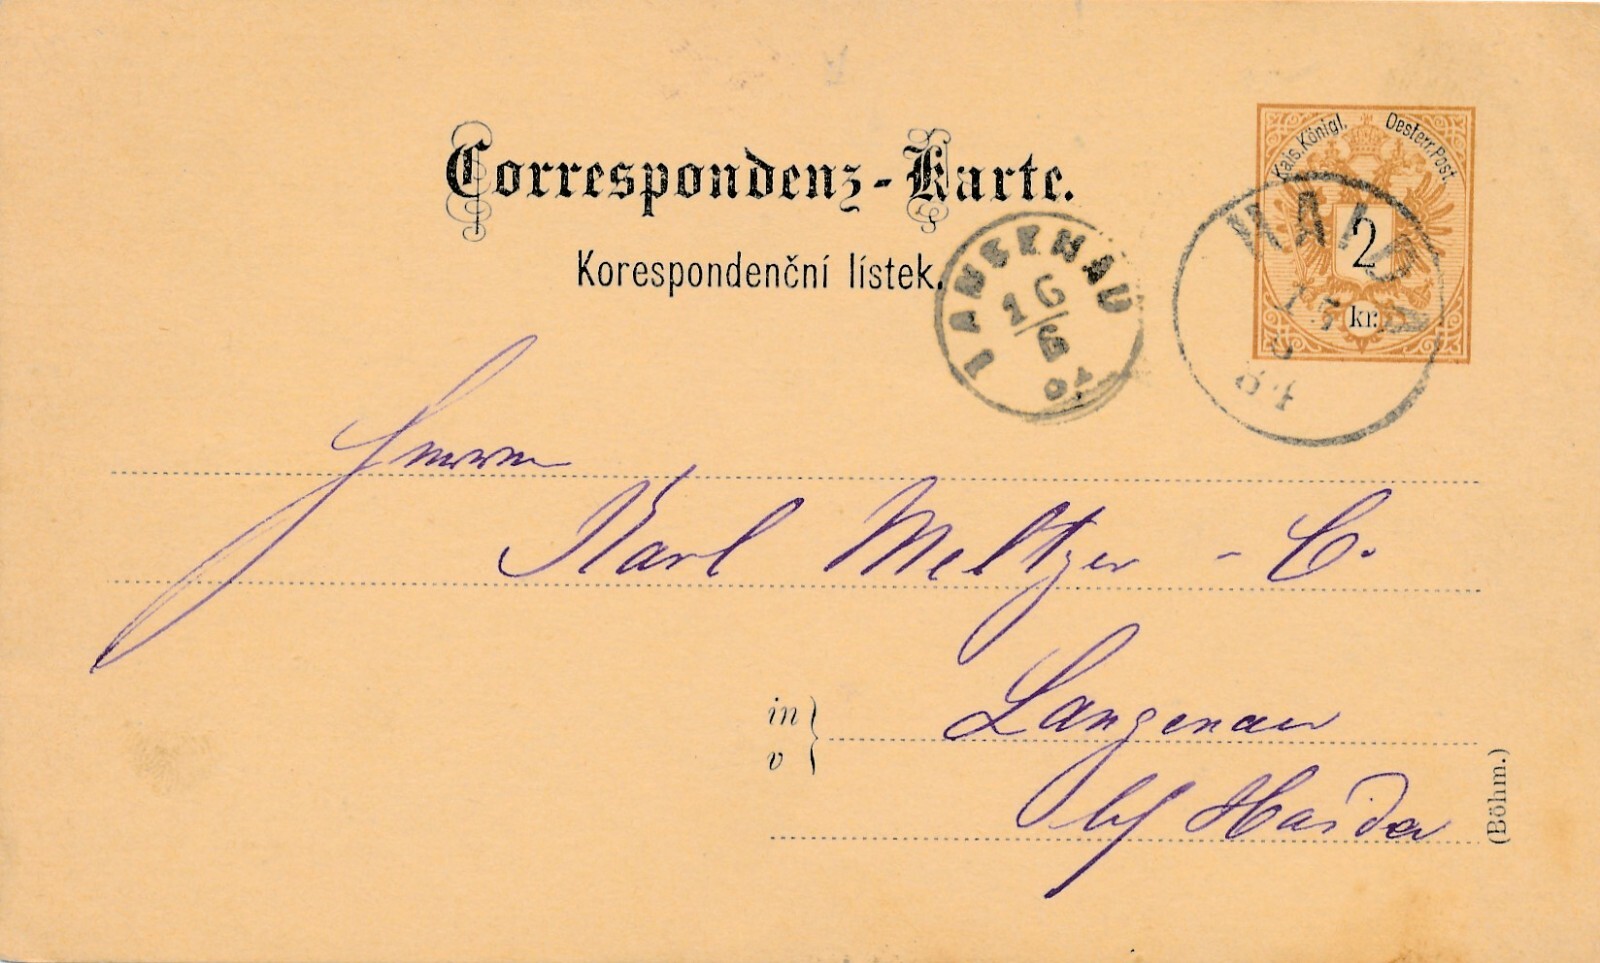 Correspondenz-Karte.
Korespondenční lístek.
Kais. Königl. Oesterr. Post.
2
kr.
LANGENAU
16
6
HAIDA
15
84
Herrn
Karl Meltzer - C.
in
v
Langenau
bei Haida
(Böhm.)